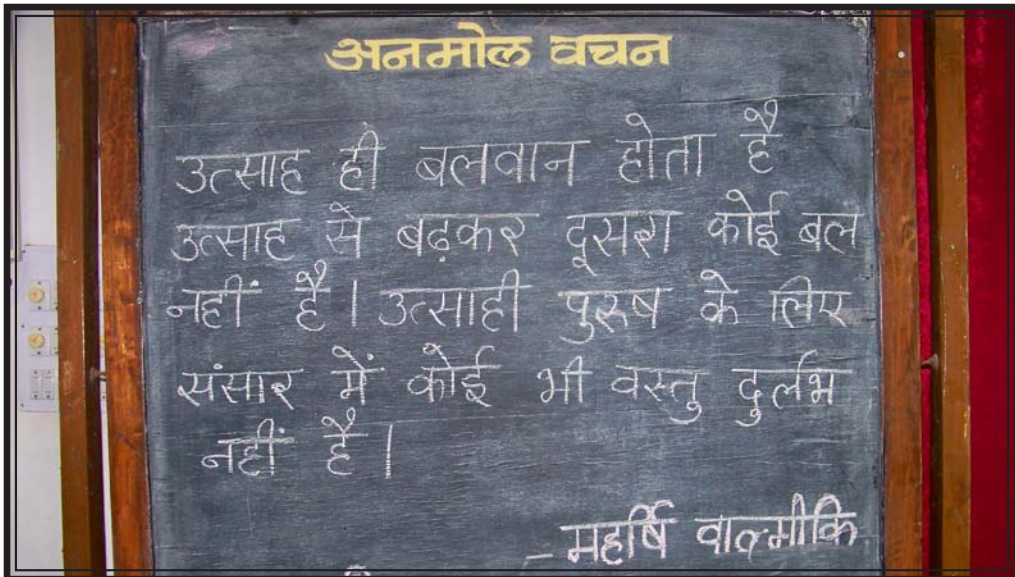 अनमोल वचन
उत्साह ही बलवान होता है
उत्साह से बढ़कर दूसरा कोई बल
नहीं है। उत्साही पुरुष के लिए
संसार में कोई भी वस्तु दुर्लभ
नहीं है।
- महर्षि वाल्मीकि